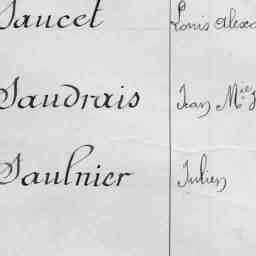 Saucet Louis Alex
Saudrais Jean Mie J
Saulnier Julien